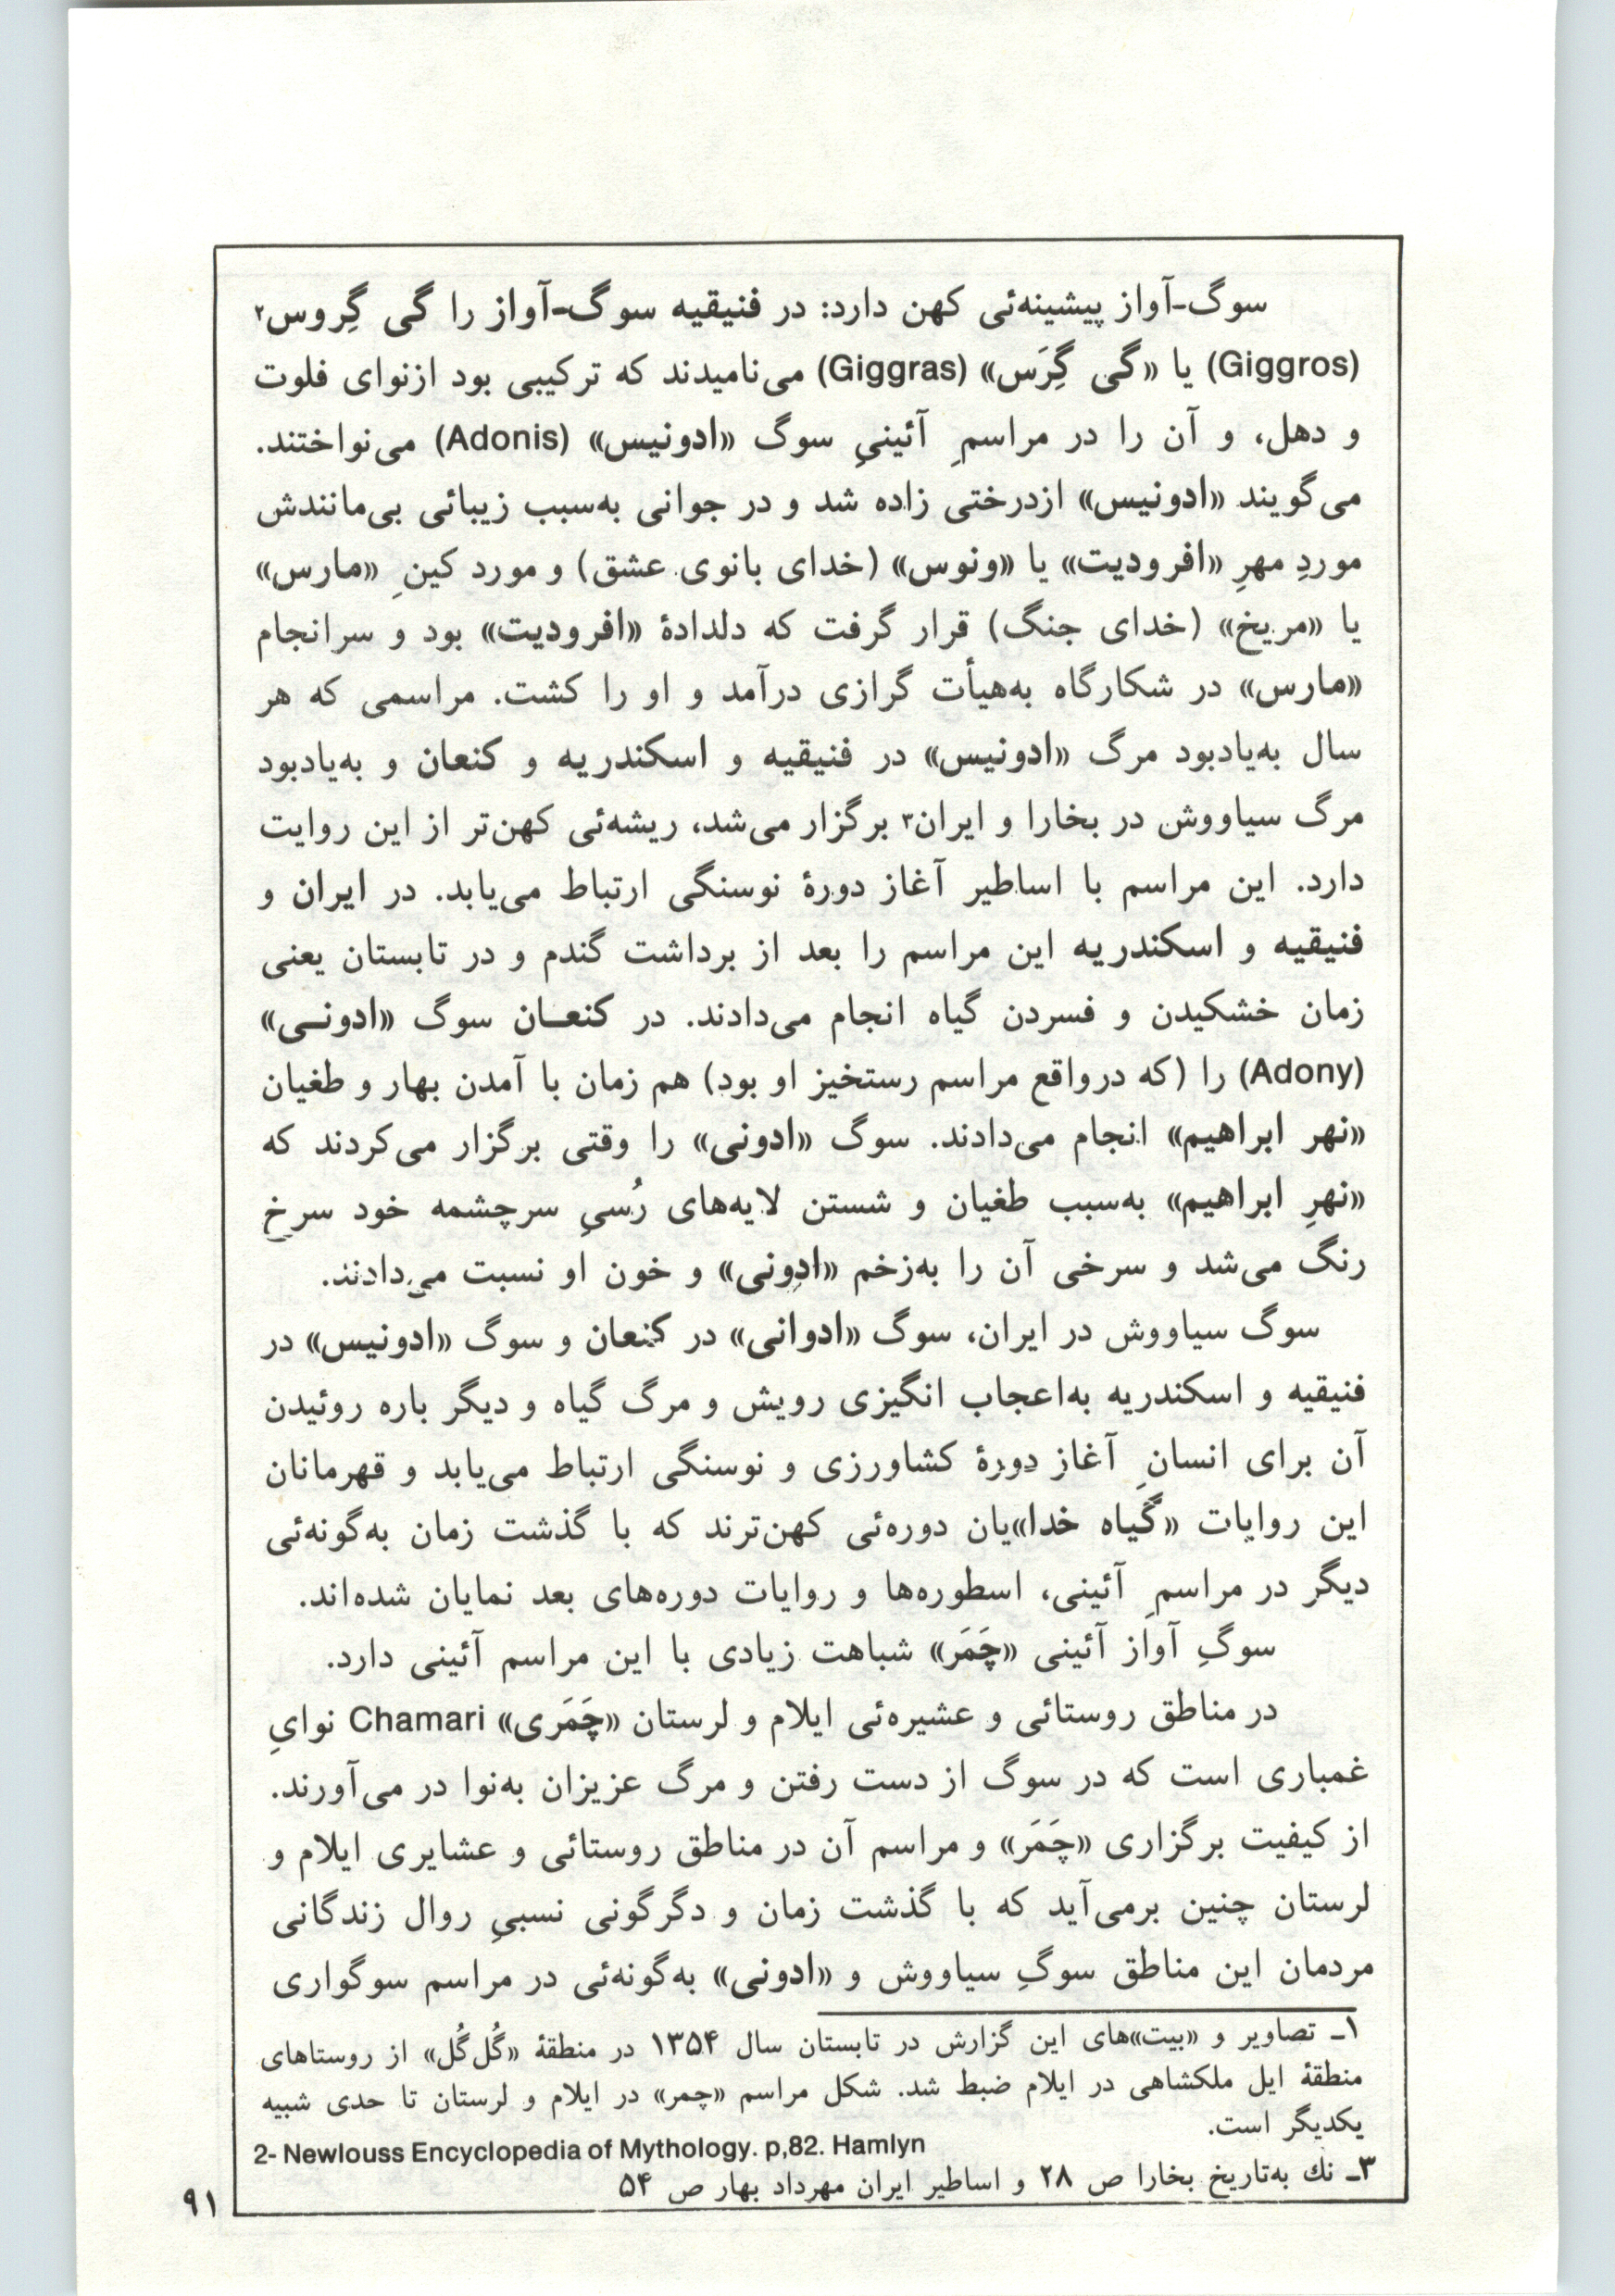 سوگ-آواز پیشینه‌ئی کهن دارد: در فنیقیه سوگ-آواز را گی گِروس۲
(Giggros) یا «گی گِرَس» (Giggras) می‌نامیدند که ترکیبی بود ازنوای فلوت
و دهل، و آن را در مراسمِ آئینیِ سوگ «ادونیس» (Adonis) می‌نواختند.
می‌گویند «ادونیس» ازدرختی زاده شد و در جوانی به‌سبب زیبائی بی‌مانندش
موردِ مهرِ «افرودیت» یا «ونوس» (خدای بانوی عشق) و مورد کینِ «مارس»
یا «مریخ» (خدای جنگ) قرار گرفت که دلدادۀ «افرودیت» بود و سرانجام
«مارس» در شکارگاه به‌هیأت گرازی درآمد و او را کشت. مراسمی که هر
سال به‌یادبود مرگ «ادونیس» در فنیقیه و اسکندریه و کنعان و به‌یادبود
مرگ سیاووش در بخارا و ایران۳ برگزار می‌شد، ریشه‌ئی کهن‌تر از این روایت
دارد. این مراسم با اساطیر آغاز دورۀ نوسنگی ارتباط می‌یابد. در ایران و
فنیقیه و اسکندریه این مراسم را بعد از برداشت گندم و در تابستان یعنی
زمان خشکیدن و فسردن گیاه انجام می‌دادند. در کنعـان سوگ «ادونـی»
(Adony) را (که درواقع مراسم رستخیز او بود) هم زمان با آمدن بهار و طغیان
«نهر ابراهیم» انجام می‌دادند. سوگ «ادونی» را وقتی برگزار می‌کردند که
«نهرِ ابراهیم» به‌سبب طغیان و شستن لایه‌های رُسیِ سرچشمه خود سرخ
رنگ می‌شد و سرخی آن را به‌زخم «ادونی» و خون او نسبت می‌دادند.
سوگ سیاووش در ایران، سوگ «ادوانی» در کنعان و سوگ «ادونیس» در
فنیقیه و اسکندریه به‌اعجاب انگیزی رویش و مرگ گیاه و دیگر باره روئیدن
آن برای انسانِ آغاز دورۀ کشاورزی و نوسنگی ارتباط می‌یابد و قهرمانان
این روایات «گیاه خدا»یان دوره‌ئی کهن‌ترند که با گذشت زمان به‌گونه‌ئی
دیگر در مراسمِ آئینی، اسطوره‌ها و روایات دوره‌های بعد نمایان شده‌اند.
سوگِ آواز آئینی «چَمَر» شباهت زیادی با این مراسم آئینی دارد.
در مناطق روستائی و عشیره‌ئی ایلام و لرستان «چَمَری» Chamari نوایِ
غمباری است که در سوگ از دست رفتن و مرگ عزیزان به‌نوا در می‌آورند.
از کیفیت برگزاری «چَمَر» و مراسم آن در مناطق روستائی و عشایری ایلام و
لرستان چنین برمی‌آید که با گذشت زمان و دگرگونی نسبیِ روال زندگانی
مردمان این مناطق سوگِ سیاووش و «ادونی» به‌گونه‌ئی در مراسم سوگواری
۱ـ تصاویر و «بیت»های این گزارش در تابستان سال ۱۳۵۴ در منطقۀ «گُل‌گُل» از روستاهای
منطقۀ ایل ملکشاهی در ایلام ضبط شد. شکل مراسم «چمر» در ایلام و لرستان تا حدی شبیه
یکدیگر است.
2- Newlouss Encyclopedia of Mythology. p,82. Hamlyn
۳ـ نك به‌تاریخ بخارا ص ۲۸ و اساطیر ایران مهرداد بهار ص ۵۴
۹۱